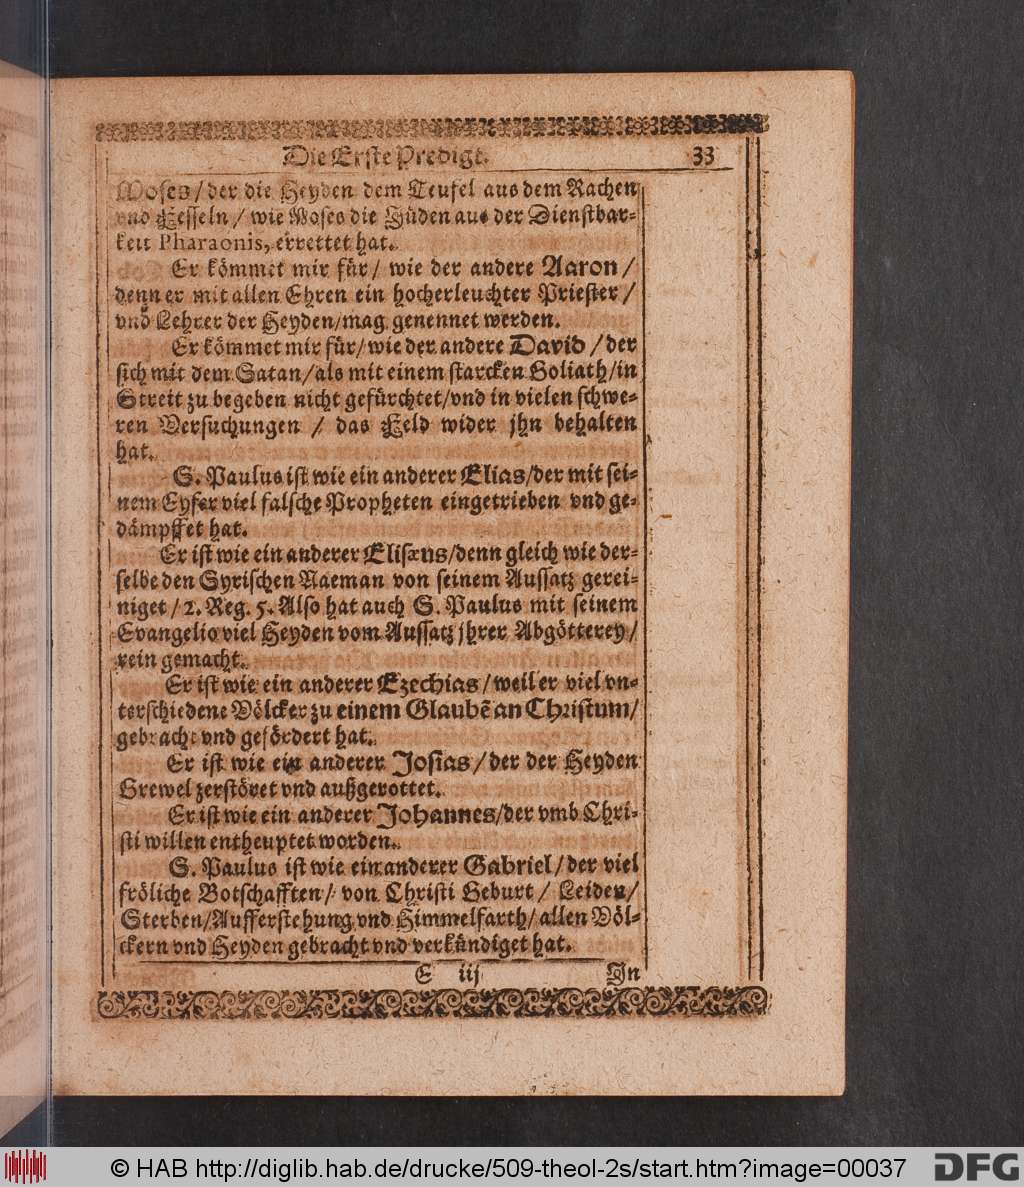 Die Erste Predigt. 33
Moses/der die Heyden dem Teufel aus dem Rachen
vnd Fesseln/ wie Moses die Jüden aus der Dienstbar-
keit Pharaonis, errettet hat.
Er kömmet mir für/ wie der andere Aaron/
denn er mit allen Ehren ein hocherleuchter Priester/
vnd Lehrer der Heyden/mag genennet werden.
Er kömmet mir für/wie der andere David/der
sich mit dem Satan/als mit einem starcken Goliath/in
Streit zu begeben nicht gefürchtet/vnd in vielen schwe-
ren Versuchungen / das Feld wider jhn behalten
hat.
S. Paulus ist wie ein anderer Elias/der mit sei-
nem Eyfer viel falsche Propheten eingetrieben vnd ge-
dämpffet hat.
Er ist wie ein anderer Elisæus/denn gleich wie der-
selbe den Syrischen Naeman von seinem Aussatz gerei-
niget/2. Reg. 5. Also hat auch S. Paulus mit seinem
Evangelio viel Heyden vom Aussatz jhrer Abgötterey/
rein gemacht.
Er ist wie ein anderer Ezechias/weil er viel vn-
terschiedene Völcker zu einem Glaubē an Christum/
gebracht vnd gefördert hat.
Er ist wie ein anderer Josias/der der Heyden
Grewel zerstöret vnd außgerottet.
Er ist wie ein anderer Johannes/der vmb Chri-
sti willen entheuptet worden.
S. Paulus ist wie ein anderer Gabriel/der viel
fröliche Botschafften/ von Christi Geburt/ Leiden/
Sterben/Aufferstehung vnd Himmelfarth/allen Völ-
ckern vnd Heyden gebracht vnd verkündiget hat.
E iij In
© HAB http://diglib.hab.de/drucke/509-theol-2s/start.htm?image=00037 DFG